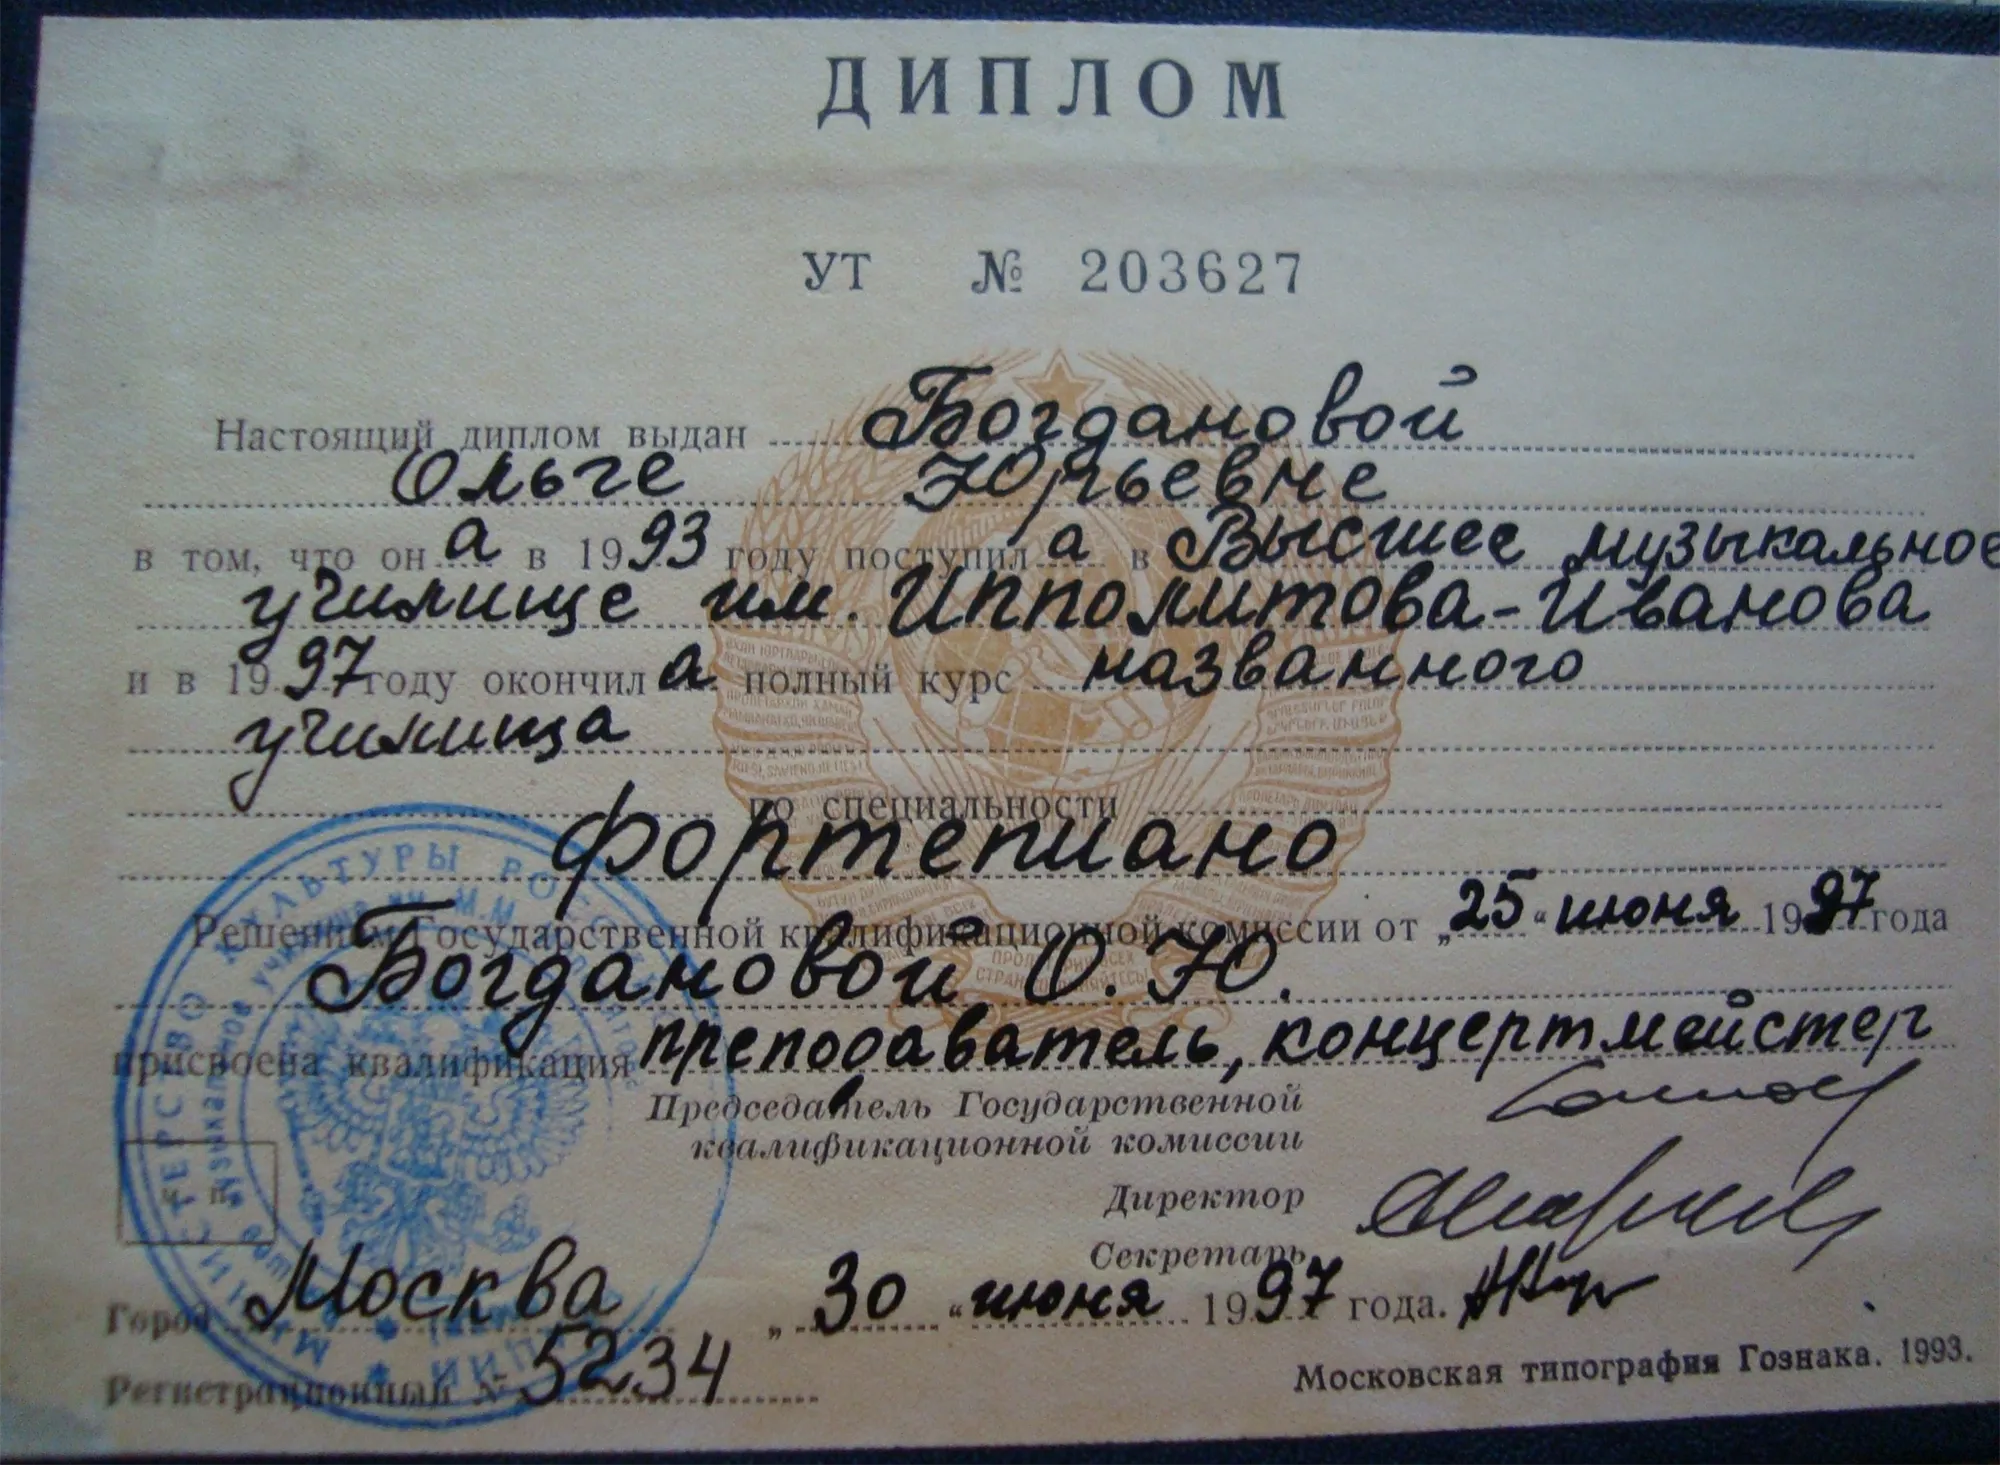 ДИПЛОМ
УТ № 203627
Настоящий диплом выдан Богдановой
Ольге Юрьевне
в том, что он а в 1993 году поступил а в Высшее музыкальное
училище им. Ипполитова-Иванова
и в 1997 году окончил а полный курс названного
училища
по специальности
фортепиано
Решением Государственной квалификационной комиссии от „25“ июня 1997 года
Богдановой О.Ю.
присвоена квалификация преподаватель, концертмейстер
Председатель Государственной
квалификационной комиссии
Директор
Секретарь
Город Москва „30“ июня 1997 года.
Регистрационный № 5234
Московская типография Гознака. 1993.
МИНИСТЕРСТВО КУЛЬТУРЫ